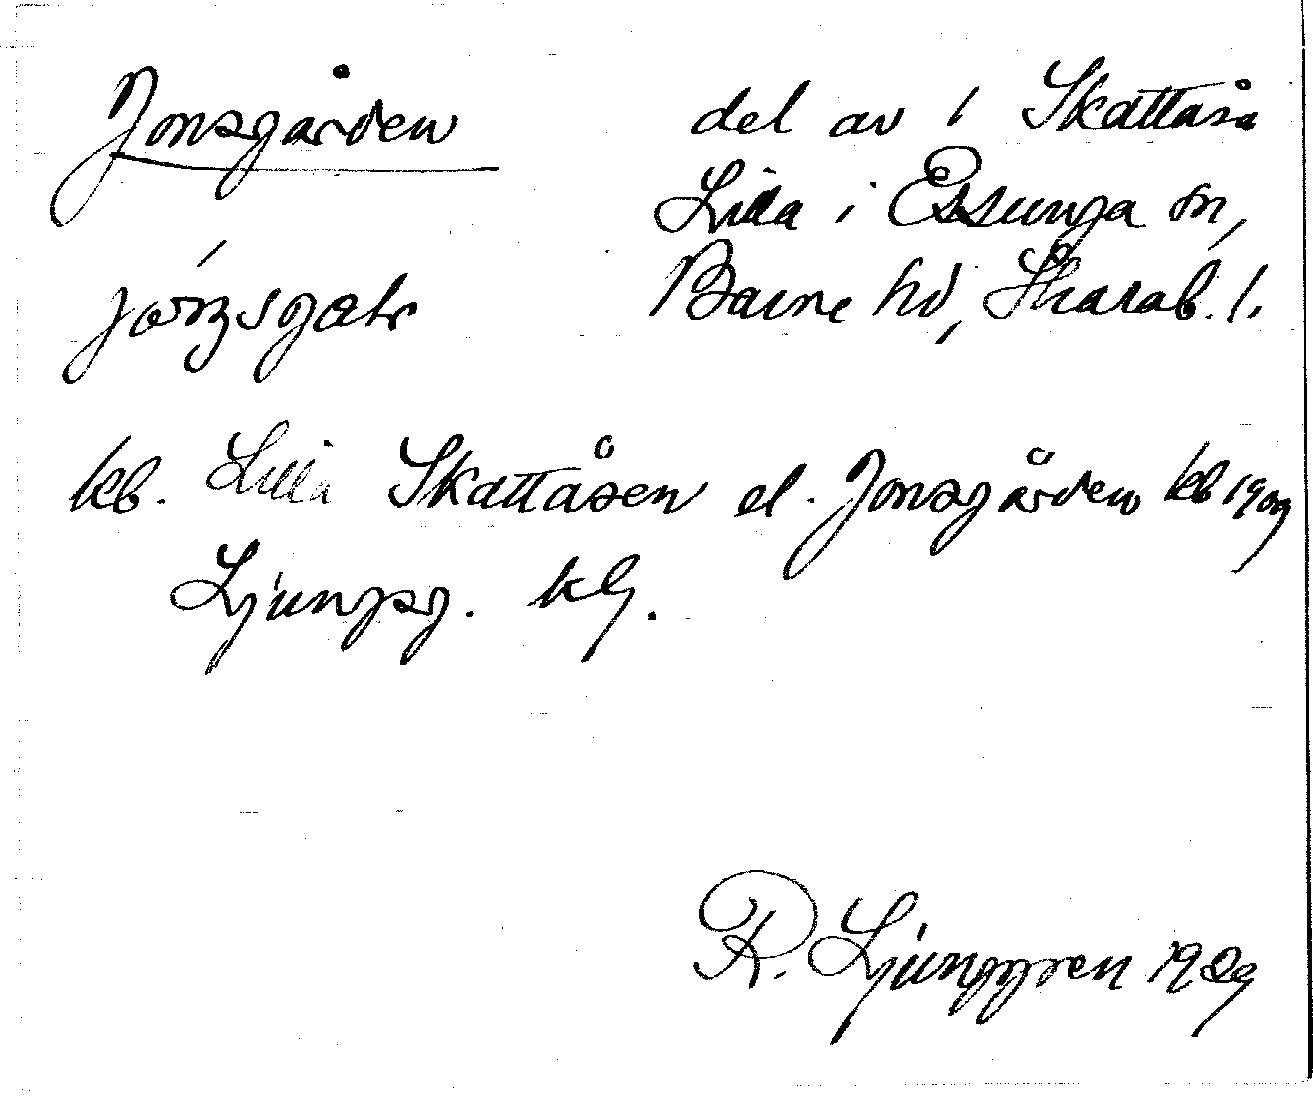 Jonsgården
del av 1 Skattåsa
Lilla i Essunga sn,
Barne hd, Skarab. l.
kb. Lilla Skattåsen el. Jonsgården kb 1909
Ljungsg. kg.
R. Ljunggren 1929